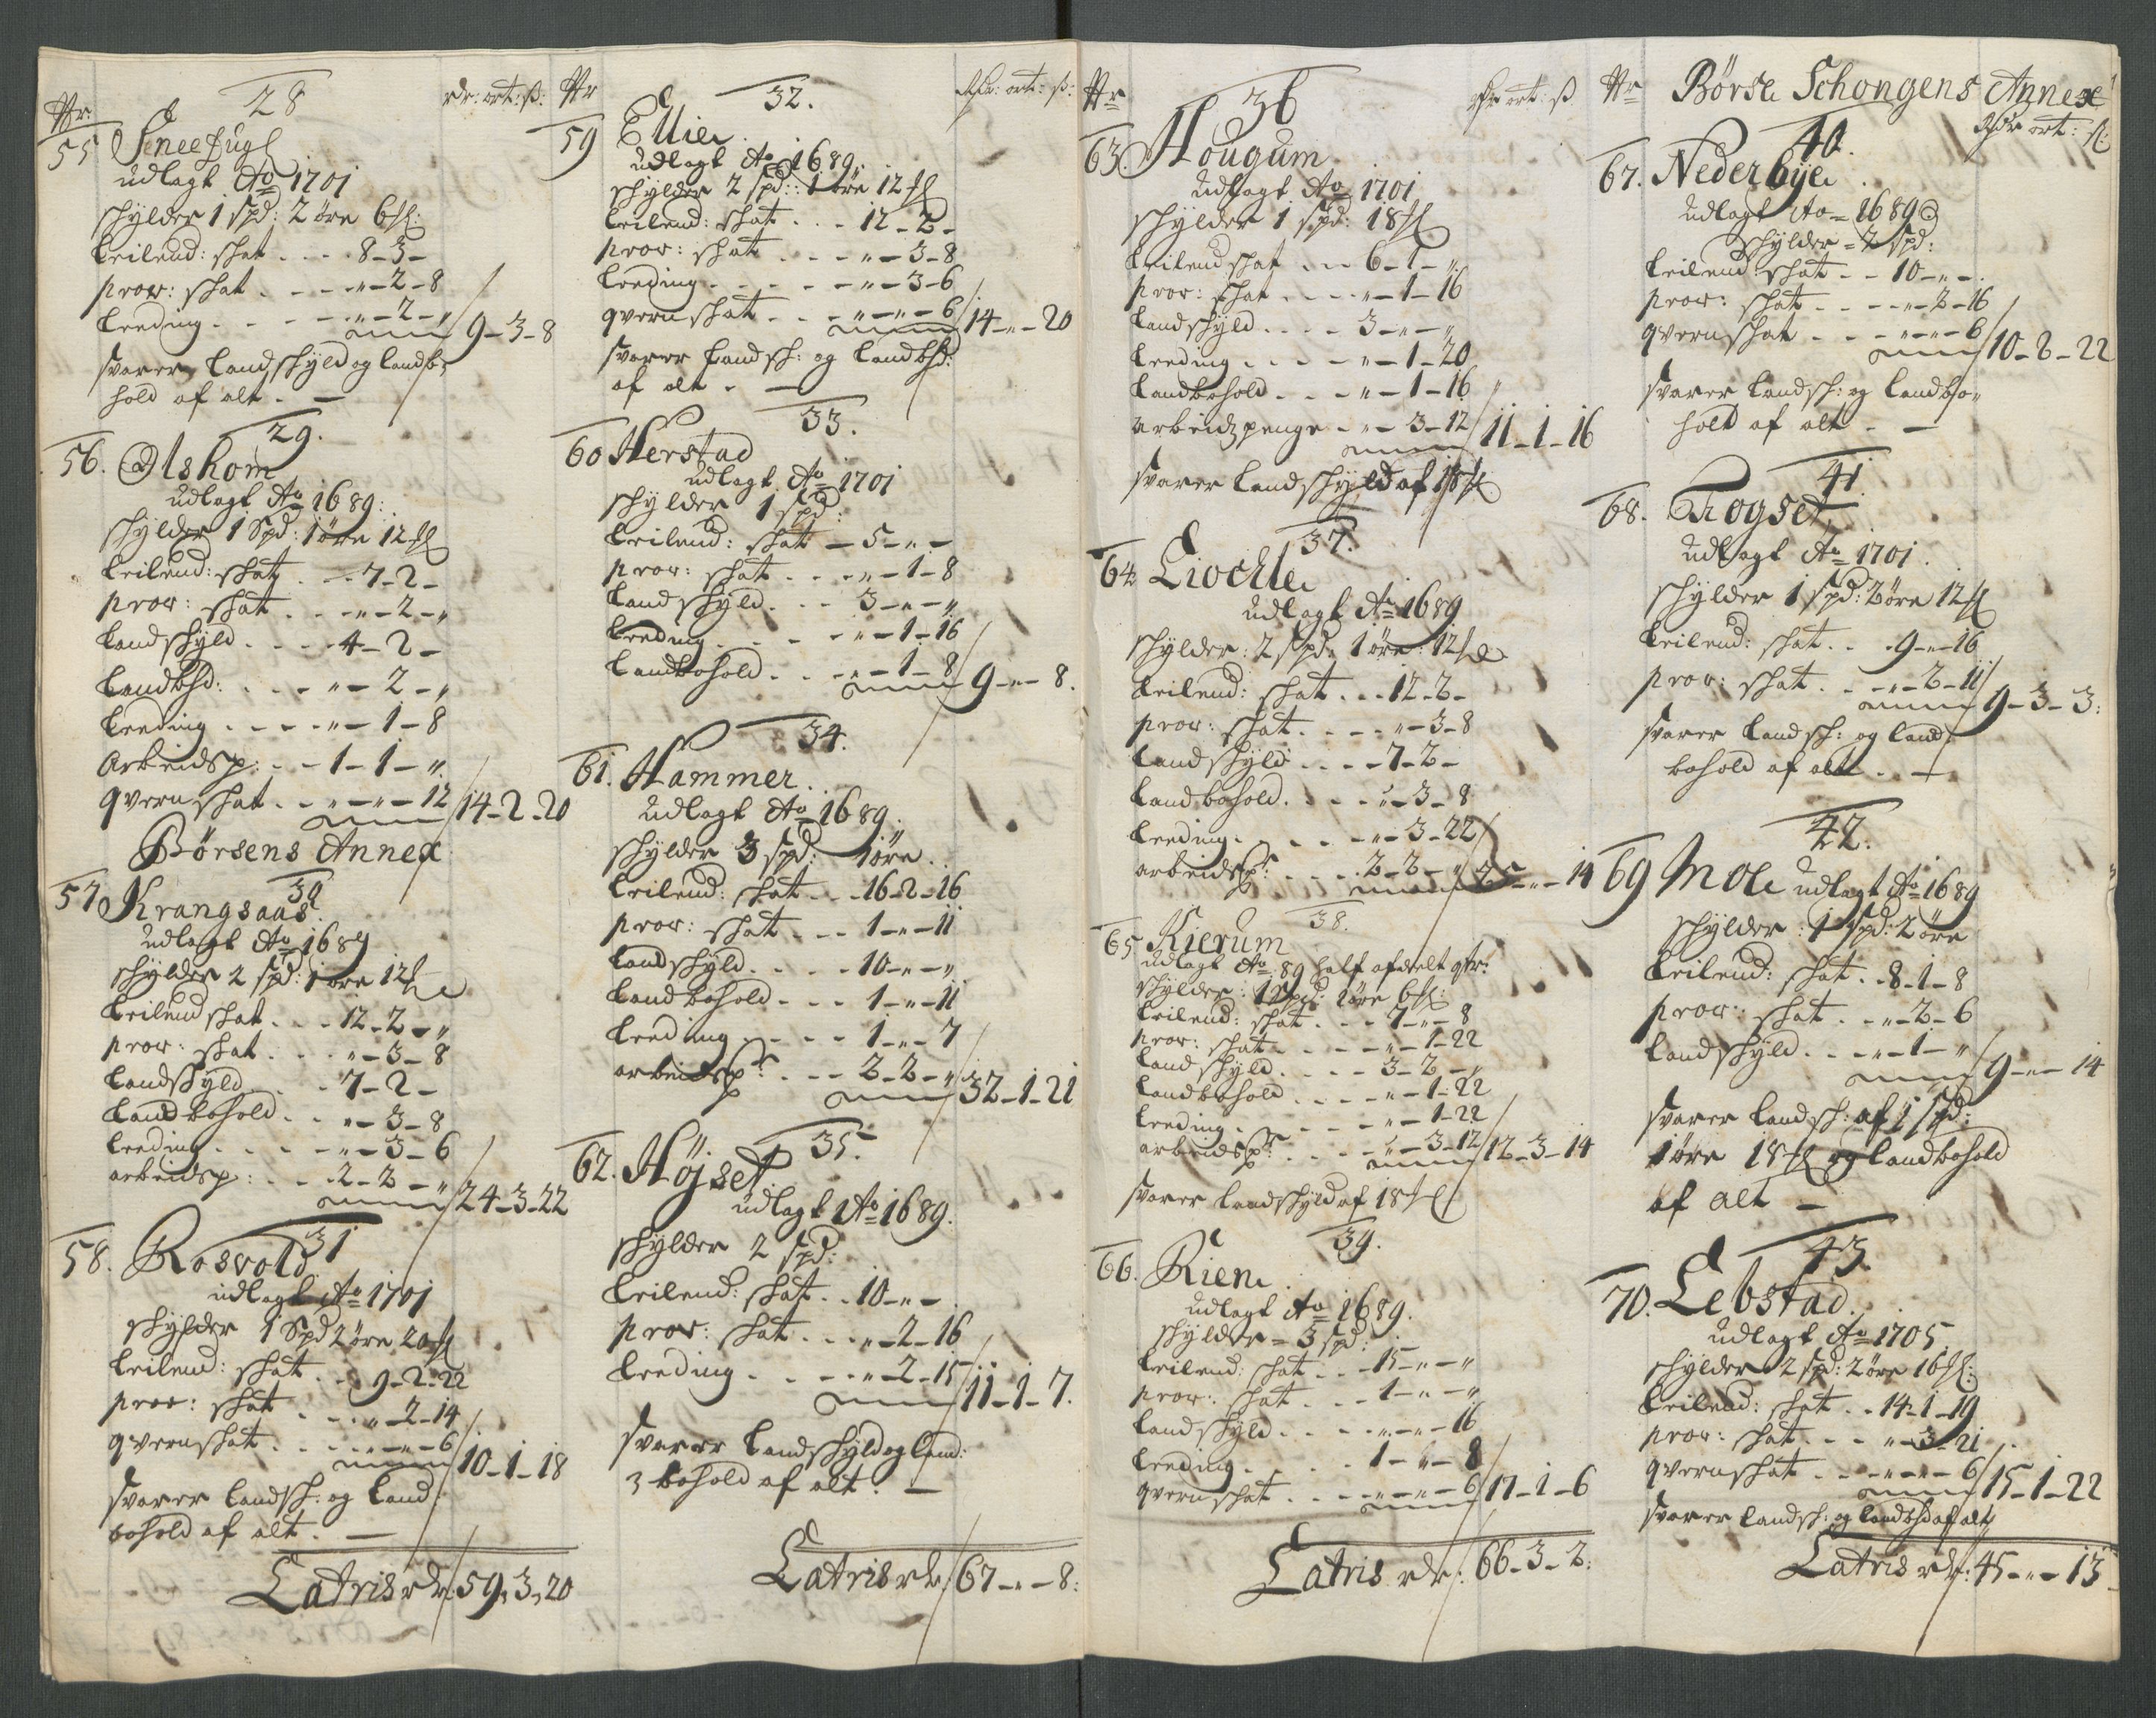 Nr: 28 rdr: ort: ß:
55 Sneefugl
udlagt Ao 1701
schylder 1 spd: 2 öre 6 sl:
Leilend: schat . . . . 8 - 3 -
prov: schat . . . . „ - 2 - 8
Leeding . . . . „ - 2 - „ 9 - 3 - 8
svarer Landschyld og Landb-
hold af alt . —
29.
56. Olshom
udlagt Ao 1689:
schylder 1 Spd: 1 öre 12 sl
Leilend: schat . . . 7 - 2 -
prov: schat . . . „ - 2 - „
Landschyld . . . . 4 - 2 -
Landbhd: . . . „ - 2 - „
Leeding . . . . „ - 1 - 8
Arbeidsp: . . 1 - 1 - „
qvernschat . . „ - „ - 12 14 - 2 - 20
Börsens Annex
30
57 Krangsaas
udlagt Ao 1689
schylder 2 spd: 1 öre 12 sl
Leilend schat . . . 12 - 2 - „
prov: schat . . . „ - 3 - 8
Landschyld . . . 7 - 2 -
Landbohold . . „ - 3 - 8
Leeding . . . . „ - 3 - 6
arbeidsp: . . . 2 - 2 - „ 24 - 3 - 22
31
58. Rosvold
udlagt Ao 1701
schylder 1 Spd 2 öre 20 sl
Leilend: schat . . 9 - 2 - 22
prov: schat . . . „ - 2 - 14
qvernschat . . . „ - „ - 6 10 - 1 - 18
svarer Landsch: og Land:
bohold af alt . —
Latris rdr: 59, 3, 20
Nr 32. Rdr: ort: ß:
59 Ellie
udlagt Ao 1689:
schylder 2 spd: 1 öre 12 sl
Leilend: schat . . . 12 - 2 -
prov: schat . . . . „ - 3 - 8
Leeding . . . . . „ - 3 - 6
qvernschat . . . „ - „ - 6 14 - „ - 20
svarer Landsch: og Landbhd:
af alt . —
33.
60 Herstad
udlagt Ao 1701
schylder 1 spd:
Leilend: schat — 5 - „ -
prov: schat . . . „ - 1 - 8
Landschyld . . . 3 - „ - „
Leeding . . . . „ - 1 - 16
Landbohold . . . „ - 1 - 8 9 - „ - 8.
34.
61. Hammer
udlagt Ao 1689.
schylder 3 spd: 1 öre.
Leilend: schat . . . 16 - 2 - 16
prov: schat . . . 1 - „ - 11
Landschyld . . . . 10 - „ - „
Landbohold . . . 1 - „ - 11
Leeding . . . . 1 - „ - 7
arbeidsp: . . . 2 - 2 - „ 32 - 1 - 21
35.
62. Höjset
udlagt Ao 1689.
schylder 2 spd:
Leilend: schat . . 10 - „ -
prov: schat . . . „ - 2 - 16
Leeding . . . . . „ - 2 - 15 11 - 1 - 7.
svarer Landschyld og Land:
bohold af alt . —
Latris rdr 67 - „ - 8:
Nr 36 Rdr ort: ß
63 Hougum
udlagt Ao 1701
schylder 1 spd: 18 sl
Leilend schat . . . 6 - 1 - „
prov: schat . . . . „ - 1 - 16
Landschyld . . . . 3 - „ - „
Leeding . . . . . „ - 1 - 20
Landbohold . . . „ - 1 - 16
arbeidzpenge . „ - 3 - 12 11 - 1 - 16
svarer Landschyld af 18 sl
37.
64. Liochle
udlagt Ao 1689
schylder: 2 spd: 1 öre: 12 sl
Leilend: schat . . . 12 - 2 -
prov: schat . . . . „ - 3 - 8
Landschyld . . . . 7 - 2 -
Landbohold . . . . „ - 3 - 8
Leeding . . . . . „ - 3 - 22
arbeidsp: . . . . 2 - 2 - „ 25 - „ - 14
38.
65 Kierum
udlagt Ao 89 half afdeelt qtr:
schylder: 1 Spd: 1 öre 6 sl:
Leilend: schat . . . 7 - „ - 8
prov: schat . . . . „ - 1 - 22
Landschyld . . . . 3 - 2 - „
Landbohold . . . . „ - 1 - 22
Leeding . . . . . „ - 1 - 22
arbeidsp: . . . . „ - 3 - 12 12 - 3 - 14
svarer Landschyld af 18 sl
39.
66. Rien
udlagt Ao 1689.
schylder = 3 spd:
Leilend: schat . . . 15 - „ - „
prov: schat . . . 1 - „ - „
Landschyld . . . . „ - „ - 16
Leeding . . . . . 1 - „ - 8
qvernschat . . . . „ - „ - 6 17 - 1 - 6
Latris rdr: 66 - 3 - 2:
Nr Börse Schongens Annexe
40. Rdr ort: sl:
67. Nederbye
udlagt Ao = 1689
schylder = 2 spd:
Leilend: schat . . 10 - „ -
prov: schat . . . . „ - 2 - 16
qvernschat . . . „ - „ - 6 10 - 2 - 22
svarer Landsch: og Landbo-
hold af alt . —
41
68. Trogset
udlagt Ao 1701.
schylder 1 spd: 2 öre 12 sl
Leilend: schat . . . 9 - „ - 16
prov: schat . . . „ - 2 - 11 9 - 3 - 3:
svarer Landsch: og Land:
bohold af alt . . —
42.
69 Moe udlagt Ao 1689
schylder: 1 spd: 2 öre
Leilend: schat . . 8 - 1 - 8
prov: schat . . „ - 2 - 6
Landschyld . . . „ - 1 - „ 9 - „ - 14
svarer Landsch: af 1 spd:
1 öre 18 sl og Landbohold
af alt —
43.
70. Lebstad.
udlagt Ao 1705
schylder 2 spd: 2 öre 16 sl:
Leilend: schat . . 14 - 1 - 19
prov: schat . . . „ - 3 - 21
qvernschat . . . „ - „ - 6 15 - 1 - 22
svarer Landsch: og Landbhd af alt
Latris rdr: 45 - „ - 13